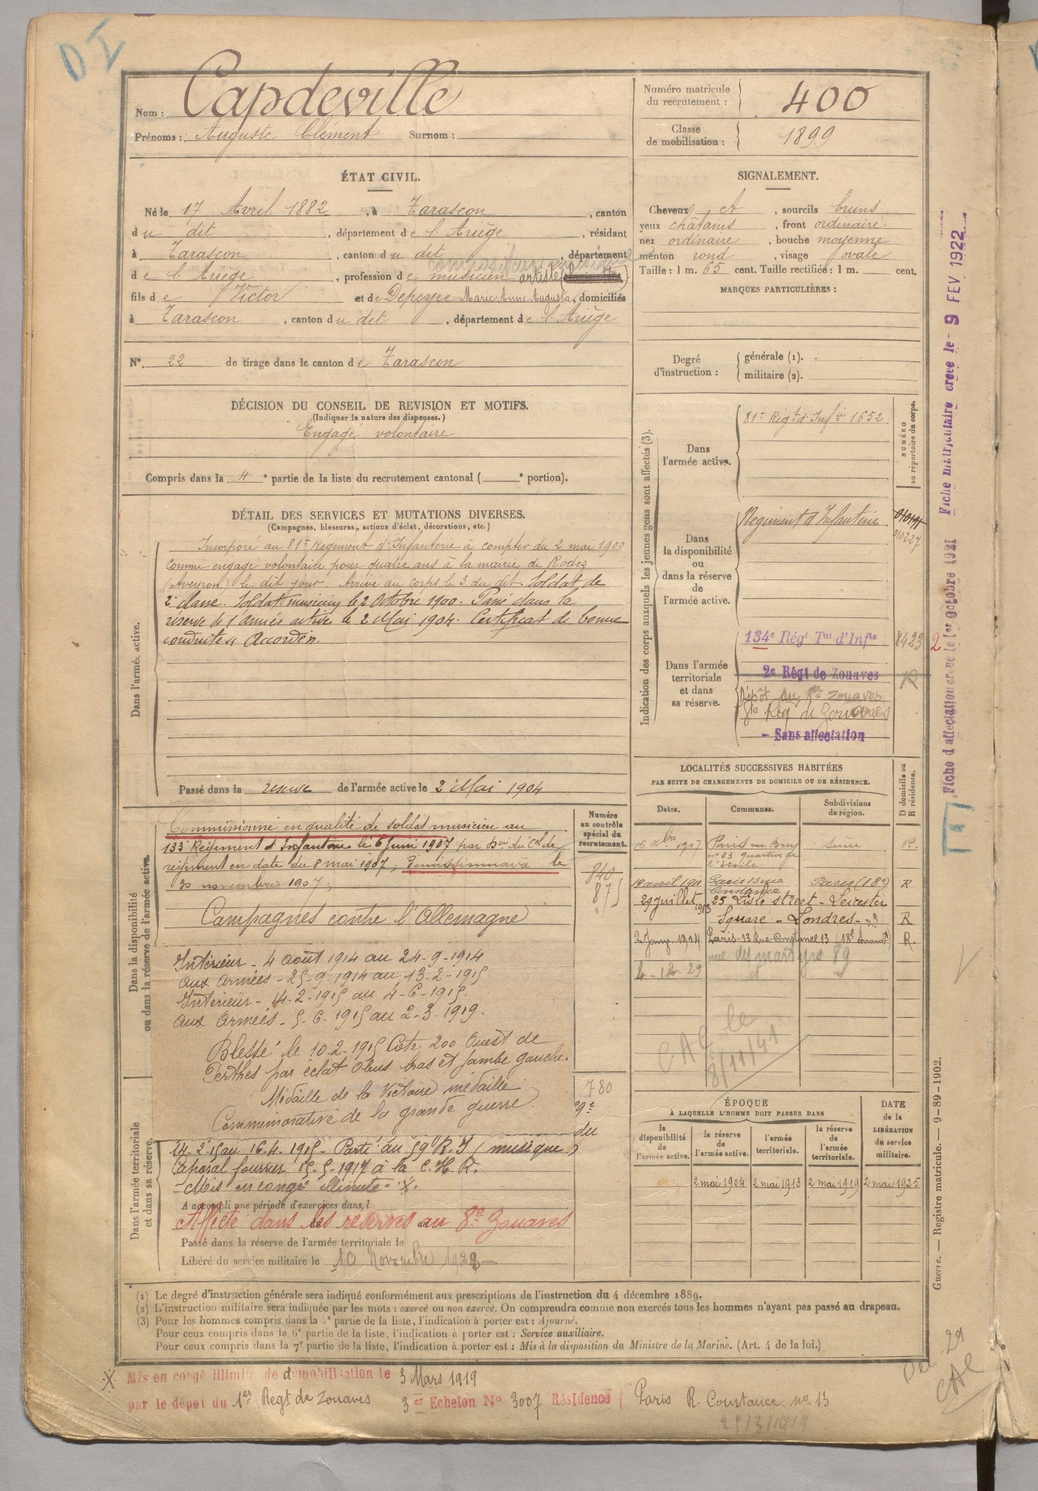 D I
Nom : Capdeville
Prénoms : Auguste Clément Surnom :
Numéro matricule du recrutement : 400
Classe de mobilisation : 1899
ÉTAT CIVIL.
Né le 17 Avril 1882, à Tarascon, canton
du dit, département de l'Ariège, résidant
à Tarascon, canton du dit, département
de l'Ariège, profession de musicien artiste
fils de Victor et de Depeyre Marie Anne Augusta, domiciliés
à Tarascon, canton du dit, département de l'Ariège
N° 22 de tirage dans le canton de Tarascon
SIGNALEMENT.
Cheveux et, sourcils bruns
yeux châtains, front ordinaire
nez ordinaire, bouche moyenne
menton rond, visage ovale
Taille : 1 m. 65 cent. Taille rectifiée : 1 m. cent.
MARQUES PARTICULIÈRES :
Degré d'instruction : générale (1). -
militaire (2).
DÉCISION DU CONSEIL DE REVISION ET MOTIFS.
(Indiquer la nature des dispenses.)
Engagé volontaire
Compris dans la 4e partie de la liste du recrutement cantonal ( e portion).
DÉTAIL DES SERVICES ET MUTATIONS DIVERSES.
(Campagnes, blessures, actions d'éclat, décorations, etc.)
Dans l'armée active.
Incorporé au 81e Régiment d'Infanterie à compter du 2 mai 1900
comme engagé volontaire pour quatre ans à la mairie de Rodez
(Aveyron) le dit jour. Arrivé au corps le 3 du dit. Soldat de
2e classe. Soldat musicien le 2 Octobre 1900. Passé dans la
réserve de l'armée active le 2 Mai 1904. Certificat de bonne
conduite "Accordé".
Passé dans la réserve de l'armée active le 2 Mai 1904
Indication des corps auxquels les jeunes gens sont affectés (3).
NUMÉRO au répertoire du corps.
Dans l'armée active.
81e Régt d'Infie 1652
Dans la disponibilité ou dans la réserve de l'armée active.
Régiment d'Infanterie
Dans l'armée territoriale et dans sa réserve.
134e Régt Tal d'Infie 8423
2e Régt de Zouaves R
Dépôt du 1er zouaves
8e Rég de Zouaves
- Sans affectation
2
Dans la disponibilité ou dans la réserve de l'armée active.
Commissionné en qualité de soldat musicien au
133e Régiment d'Infanterie le 6 Juin 1907 par Don du Cel de
régiment en date du 8 mai 1907, Démissionnaire le
30 novembre 1907.
Numéro au contrôle spécial du recrutement.
840
875
Campagnes contre l'Allemagne
Intérieur - 4 août 1914 au 24-9-1914
aux armées - 25-9-1914 au 13-2-1915
Intérieur - 14-2-1915 au 4-6-1915.
aux Armées - 5-6-1915 au 2-3-1919.
Blessé le 10-2-1915 Côte 200 Ouest de
Perthes par éclat obus bras et jambe gauche.
Médaille de la Victoire médaille
Commémorative de la grande guerre.
780
Dans l'armée territoriale et dans sa réserve.
16.4.1915 - Passé au 59e R.I (musique)
Caporal fourrier 15-5-1917 à la C.H.R.
- Mis en congé illimité - X.
A accompli une période d'exercices dans l
Affecté dans les réserves au 8e Zouaves
Passé dans la réserve de l'armée territoriale le
Libéré du service militaire le 10 Novembre
LOCALITÉS SUCCESSIVES HABITÉES
PAR SUITE DE CHANGEMENTS DE DOMICILE OU DE RÉSIDENCE.
D domicile ou R résidence.
Dates. Communes. Subdivisions de région.
16 Xbre 1907 Seine R.
19 avril 1911 Paris 13 rue Constance Paris (18e) R
29 Juillet 1913 25 Lisle Street - Leicester
Square - Londres - R
2 Janv 1914 Paris - 13 Rue Constance 13 R.
4-12-29 rue des martyrs 89
CAC le 8/11/41
ÉPOQUE
À LAQUELLE L'HOMME DOIT PASSER DANS
la disponibilité de l'armée active. la réserve de l'armée active. l'armée territoriale. la réserve de l'armée territoriale.
DATE de la LIBÉRATION du service militaire.
2 mai 1904 2 mai 1913 2 mai 1919 2 mai 1925
(1) Le degré d'instruction générale sera indiqué conformément aux prescriptions de l'instruction du 4 décembre 1889.
(2) L'instruction militaire sera indiquée par les mots : exercé ou non exercé. On comprendra comme non exercés tous les hommes n'ayant pas passé au drapeau.
(3) Pour les hommes compris dans la 5e partie de la liste, l'indication à porter est : Ajourné.
Pour ceux compris dans la 6e partie de la liste, l'indication à porter est : Service auxiliaire.
Pour ceux compris dans la 7e partie de la liste, l'indication à porter est : Mis à la disposition du Ministre de la Marine. (Art. 4 de la loi.)
X Mis en congé illimité de démobilisation le 3 Mars 1919
par le dépôt du 1er Régt de Zouaves 3er Echelon N° 3007 Résidence Paris R. Constance no 13
Fiche d'affectation créée le 1er octobre 1921 Fiche matriculaire créée le - 9 FEV 1922
Guerre. — Registre matricule. — 9-89-1902.
CAC